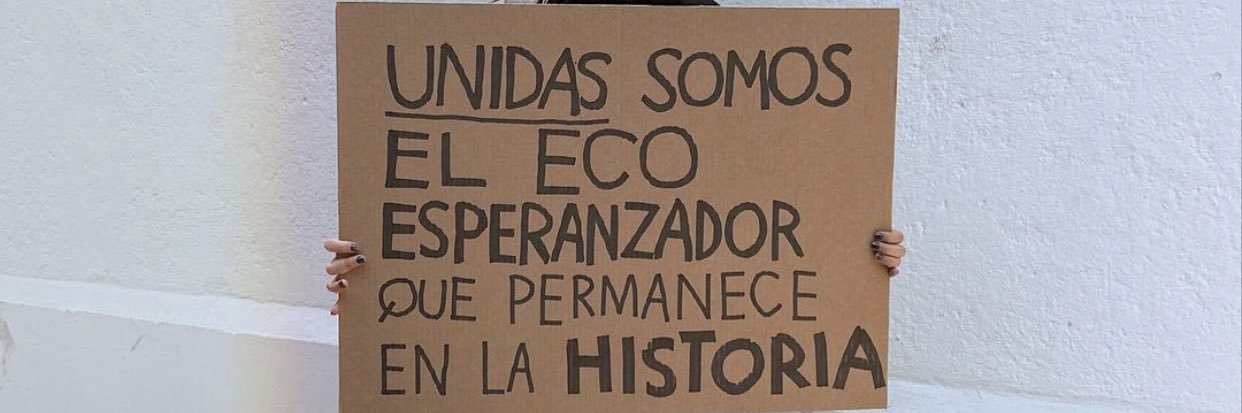 UNIDAS SOMOS
EL ECO
ESPERANZADOR
QUE PERMANECE
EN LA HISTORIA